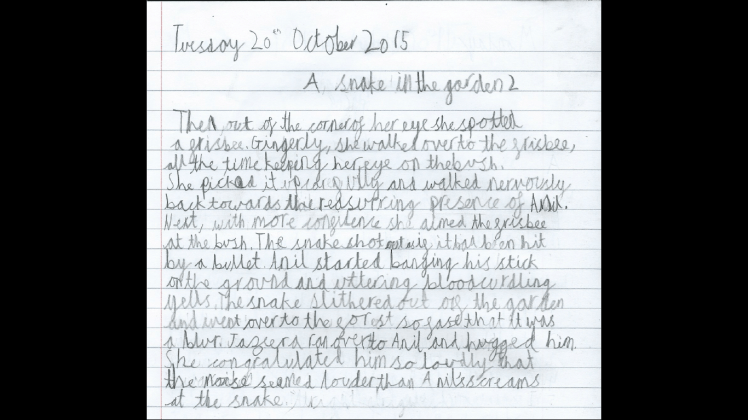 Tuesday 20th October 2015
A snake in the garden 2
Then out of the corner of her eye she spotted
a frisbee. Gingerly, she walked over to the frisbee,
all the time keeping her eye on the bush.
She picked it up carefully and walked nervously
back towards the reassurring presence of Anil.
Next, with more confidence she aimed the frisbee
at the bush. The snake shot out as if it had been hit
by a bullet. Anil started banging his stick
on the ground and uttering bloodcurdling
yells. The snake slithered out of the garden
and went over to the forest so fast that it was
a blur. Jazeera ran over to Anil and hugged him.
She congralulated him so loudly that
the noise seamed louder than Anil's screams
at the snake.